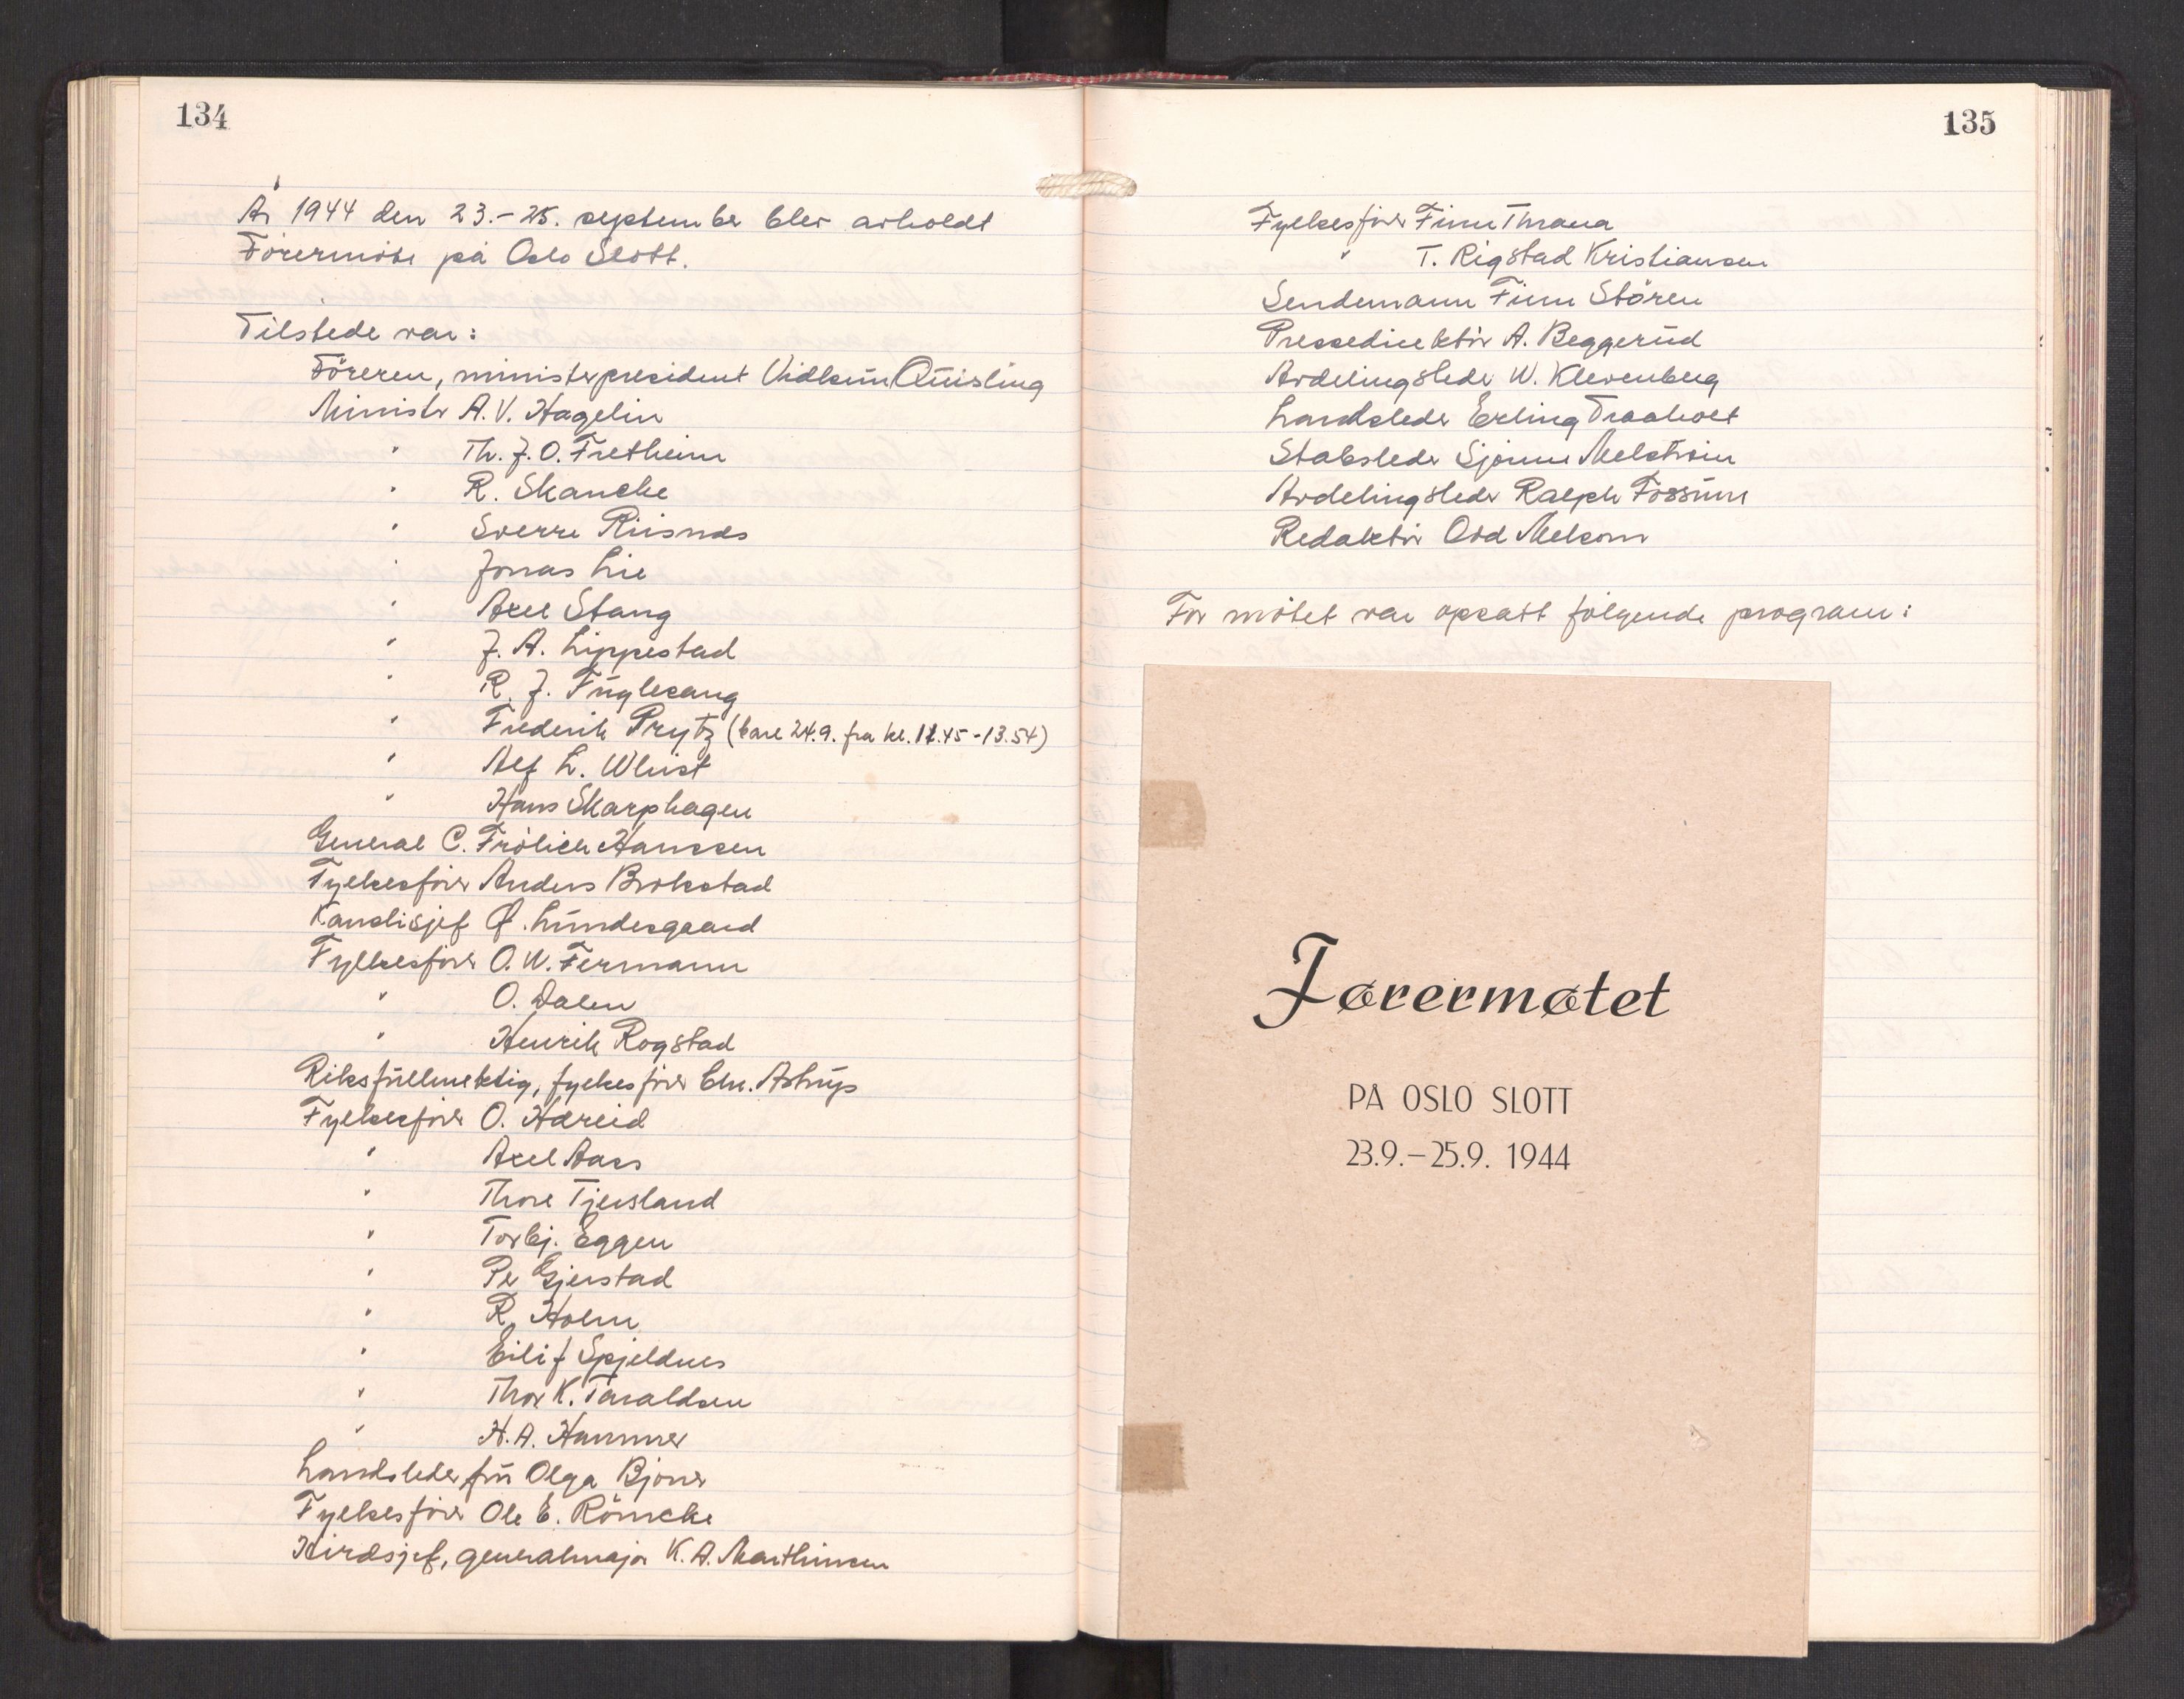 134
År 1944 den 23.-25. september blev avholdt
Førermøte på Oslo Slott.
Tilstede var:
Føreren, ministerpresident Vidkun Quisling
Minister A.V. Hagelin
" Th. J. O. Fretheim
" R. Skancke
" Sverre Riisnæs
" Jonas Lie
" Axel Stang
" J. A. Lippestad
" R. J. Fuglesang
" Frederik Prytz (bare 24.9. fra kl. 11.45-13.54)
" Alf L. Whist
" Hans Skarphagen
General C. Frölich Hanssen
Fylkesfører Anders Brokstad
Kanslisjef Ø. Lundesgaard
Fylkesfører O. W. Fermann
" O. Dalen
" Henrik Rogstad
Riksfullmektig, fylkesfører Chr. Astrup
Fylkesfører O. Hareid
" Axel Aass
" Thore Tjersland
" Torbj. Eggen
" Per Gjerstad
" R. Holm
" Eilif Spjeldnes
" Thor K. Taraldsen
" H. A. Hammer
Landsleder fru Olga Bjoner
Fylkesfører Ole E. Römcke
Hirdsjef, generalmajor K. A. Marthinsen
135
Fylkesfører Finn Thrana
" T. Rigstad Kristiansen
Sendemann Finn Stören
Pressedirektør A. Beggerud
Avdelingsleder W. Klevenberg
Landsleder Erling Traaholt
Stabsleder Sjønne Melstrøm
Avdelingsleder Ralph Fossum
Redaktør Odd Melsom
For møtet var opsatt følgende program:
Førermøtet
PÅ OSLO SLOTT
23.9.–25.9. 1944